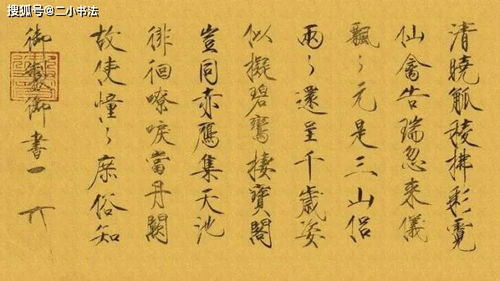 搜狐号@二小书法
清曉觚稜拂彩霓
仙禽告瑞忽來儀
飄〻元是三山侣
兩〻還呈千歲姿
似擬碧鸞棲寶閣
豈同赤鴈集天池
徘徊嘹唳當丹闕
故使憧〻庶俗知
御製御書